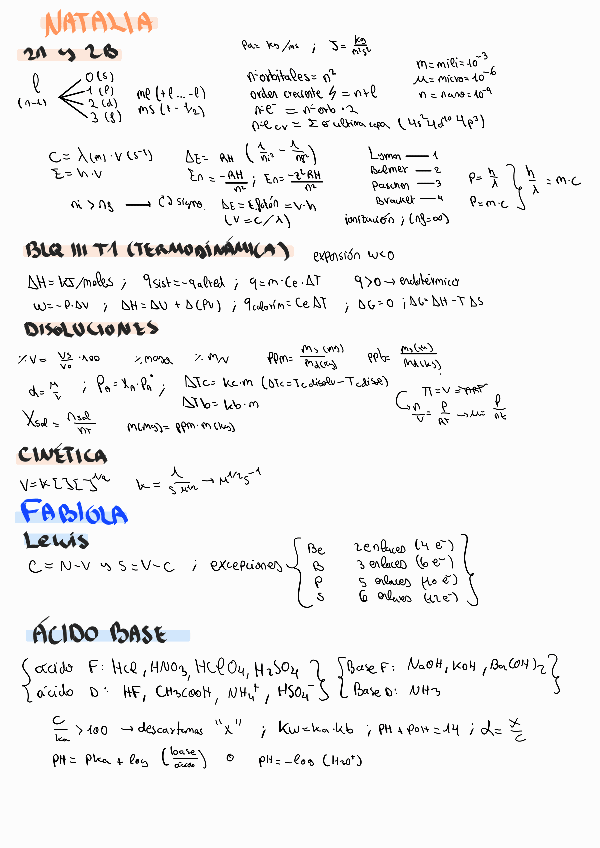 NATALIA
2A y 2B
Pa = kg/ms ; J = kg/m²s²
l (n-1) 0 (s) 1 (p) 2 (d) 3 (f)
ml (+l ... -l)
ms (+ - 1/2)
nº orbitales = n²
orden creciente = n + l
nº e⁻ = nº orb · 2
nº e cv = Σ e⁻ última capa (4s² 4d¹⁰ 4p³)
m = mili = 10⁻³
μ = micro = 10⁻⁶
n = nano = 10⁻⁹
C = λ(m) · V (s⁻¹)
E = h · V
ΔE = RH (1/ni² - 1/nf²)
En = -RH/n² ; En = -z² RH/n²
ni > nf → (-) signo. ΔE = Efotón = V · h
(V = c/λ)
Lyman — 1
Balmer — 2
Paschen — 3
Bracket — 4
ionización ; (nf = ∞)
P = h/λ
P = m · c
h/λ = m · c
BLQ III T1 (TERMODINÁMICA) expansión w<0
ΔH = kJ/moles ; qsist = -qalred ; q = m · Ce · ΔT q>0 → endotérmico
w = -P · ΔV ; ΔH = ΔU + Δ(PV) ; qcalorím = Ce ΔT ; ΔG = 0 ; ΔG = ΔH - T ΔS
DISOLUCIONES
% V = Vs/VD · 100 % masa % m/V ppm = ms (mg)/md (kg) ppb = ms (μg)/md (kg)
; PA = XA · PA° ; ΔTc = kc · m (ΔTc = Tc disolv - Tc disol)
ΔTb = kb · m
π = V =
n/V = P/RT → M = P/RT
Xsol = nsol/nT m(mg) = ppm · m(kg)
CINÉTICA
V = K [ ] [ ]^1/2 k = → M^1/2 s⁻¹
FABIOLA
Lewis
C = N - V y S = V - C ; excepciones
Be 2 enlaces (4 e⁻)
B 3 enlaces (6 e⁻)
P 5 enlaces (10 e⁻)
S 6 enlaces (12 e⁻)
ÁCIDO BASE
ácido F: HCl, HNO₃, HClO₄, H₂SO₄ Base F: NaOH, KOH, Ba(OH)₂
ácido D: HF, CH₃COOH, NH₄⁺, HSO₄⁻ Base D: NH₃
C/ka > 100 → descartamos "x" ; Kw = ka · kb ; pH + pOH = 14 ; α = x/c
pH = pka + log (base/ácido) o pH = -log (H₃O⁺)